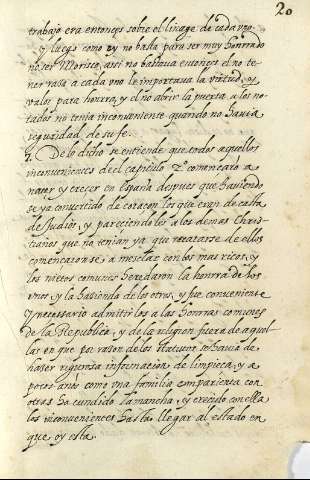 20
trabajo era entonçes sobre el linage de cada vno.
y luego como oy no basta para ser muy honrrado
no ser Morisco, assi no bastaua entonçes el no te-
ner raza a cada vno le importaua la virtud, y
valor para honrra, y el no abrir la puerta a los no-
tados no tenia inconueniente quando no hauia
seguridad de su fe.
7. De lo dicho se entiende que todos aquellos
inconuenientes del capitulo 2º començaro a
naçer y creçer en España despues que hauiendo
se ya conuertido de coraçon los que eran de casta
de Judios, y pareciendoles a los demas Chris-
tianos que no tenian ya que recatarse de ellos
començaron se a mesclar con los mas ricos, y
los nietos comunes heredaron la honrra de los
vnos, y la hasienda de los otros, y fue conueniente
y necessario admitirlos a las honrras comunes
de la Republica, y de la religion fuera de aquel-
las en que por razon de los statutos se hauia de
haser rigurosa informacion de limpieça, y a
pocos años como vna familia emparienta con
otras ha cundido la mancha, y creçido con ella
los inconuenientes hasta llegar al estado en
que oy esta.